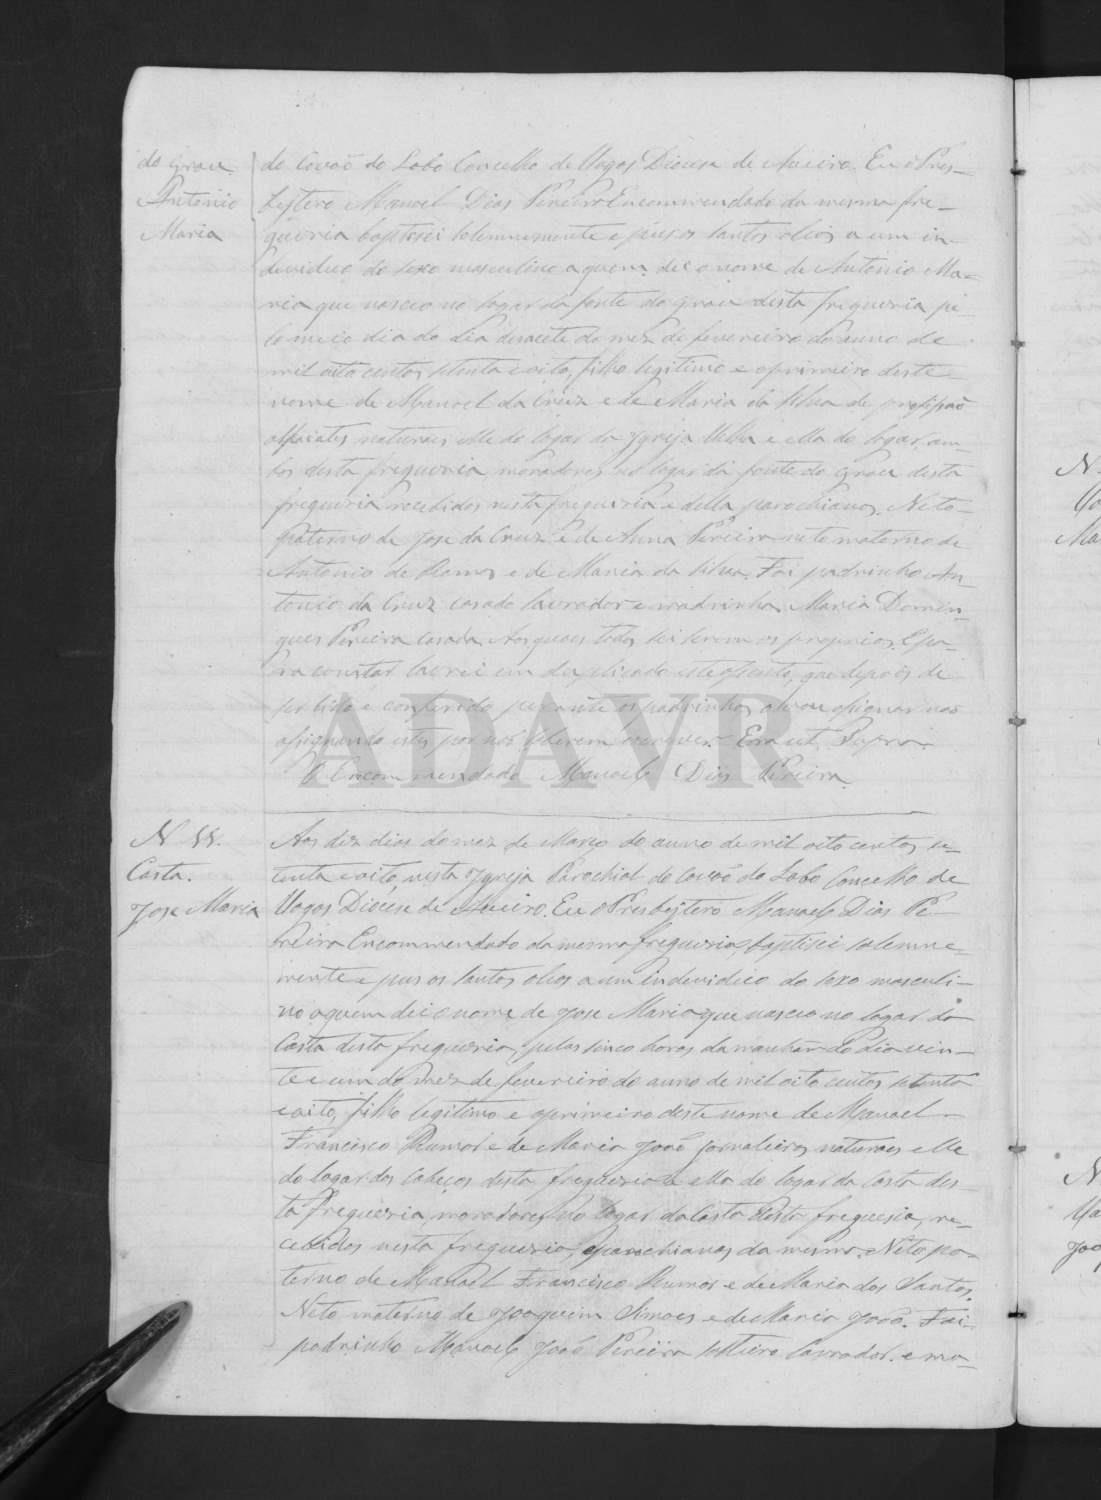 do Grau
Antonio
Maria
do Covaõ do Lobo Concelho de Vagos Diocese de Aveiro. Eu o Pres-
bytero Manoel Dias Pereira Encommendado da mesma fre-
gueria baptisei solemnemente e puz os santos oleos a um in-
deviduo do sexo masculino a quem dei o nome de Antonio Ma-
ria que nasceo no logar da fonte do grau desta fregueria pe-
lo meio dia do dia desacete do mez de fevereiro do anno de
mil oito centos setenta e oito, filho legitimo e o primeiro deste
nome de Manoel da Cruz e de Maria da Silva de profissaõ
alfaiates naturaes elle do logar da Ygreja Velha e ella do logar am-
bos desta fregueria moradores no logar da fonte do Grau desta
fregueria recebidos nesta fregueria e della parochianos. Neto
paterno de Jose da Cruz e de Anna Pereira neto materno de
Antonio de Ramos e de Maria da Silva. Foi padrinho An-
tonio da Cruz casado lavrador e madrinha Maria Domin-
gues Pereira casada. Aos quaes todos sei serem os proprios. E pa-
ra constar lavrei em duplicado este assento, que depois de
ser lido e conferido perante os padrinhos o vou assignar naõ
assignando estes por naõ saberem escrever. Era ut Supra.
O Encommendado Manoel Dias Pereira
N
Costa.
Jose Maria
Aos dez dias do mez de Março do anno de mil oito centos se-
tenta e oito, nesta Ygreja Parochial do Covaõ do Lobo Concelho de
Vagos Diocese de Aveiro. Eu o Presbytero Manoel Dias Pe-
reira Encommendado da mesma fregueria, baptisei solemne-
mente e puz os santos oleos a um indeviduo do sexo masculi-
no a quem dei o nome de Jose Maria que nasceo no logar da
Costa desta fregueria, pelas sinco horas da manhãn do dia vin-
te e um do mez de fevereiro do anno de mil oito centos setenta
e oito, filho legitimo e o primeiro deste nome de Manoel
Francisco Rumor e de Maria Joaõ jornaleiros naturaes elle
do logar dos Cabeços desta fregueria e ella do logar da Costa des-
ta fregueria, moradores no logar da Costa desta freguesia, re-
cebidos nesta fregueria, e parochianos da mesma. Neto pa-
terno de Manoel Francisco Rumor e de Maria dos Santos.
Neto materno de Joaquim Simoes e de Maria Joaõ. Foi
padrinho Manoel Joaõ Pereira solteiro lavrador. e ma-
ADAVR